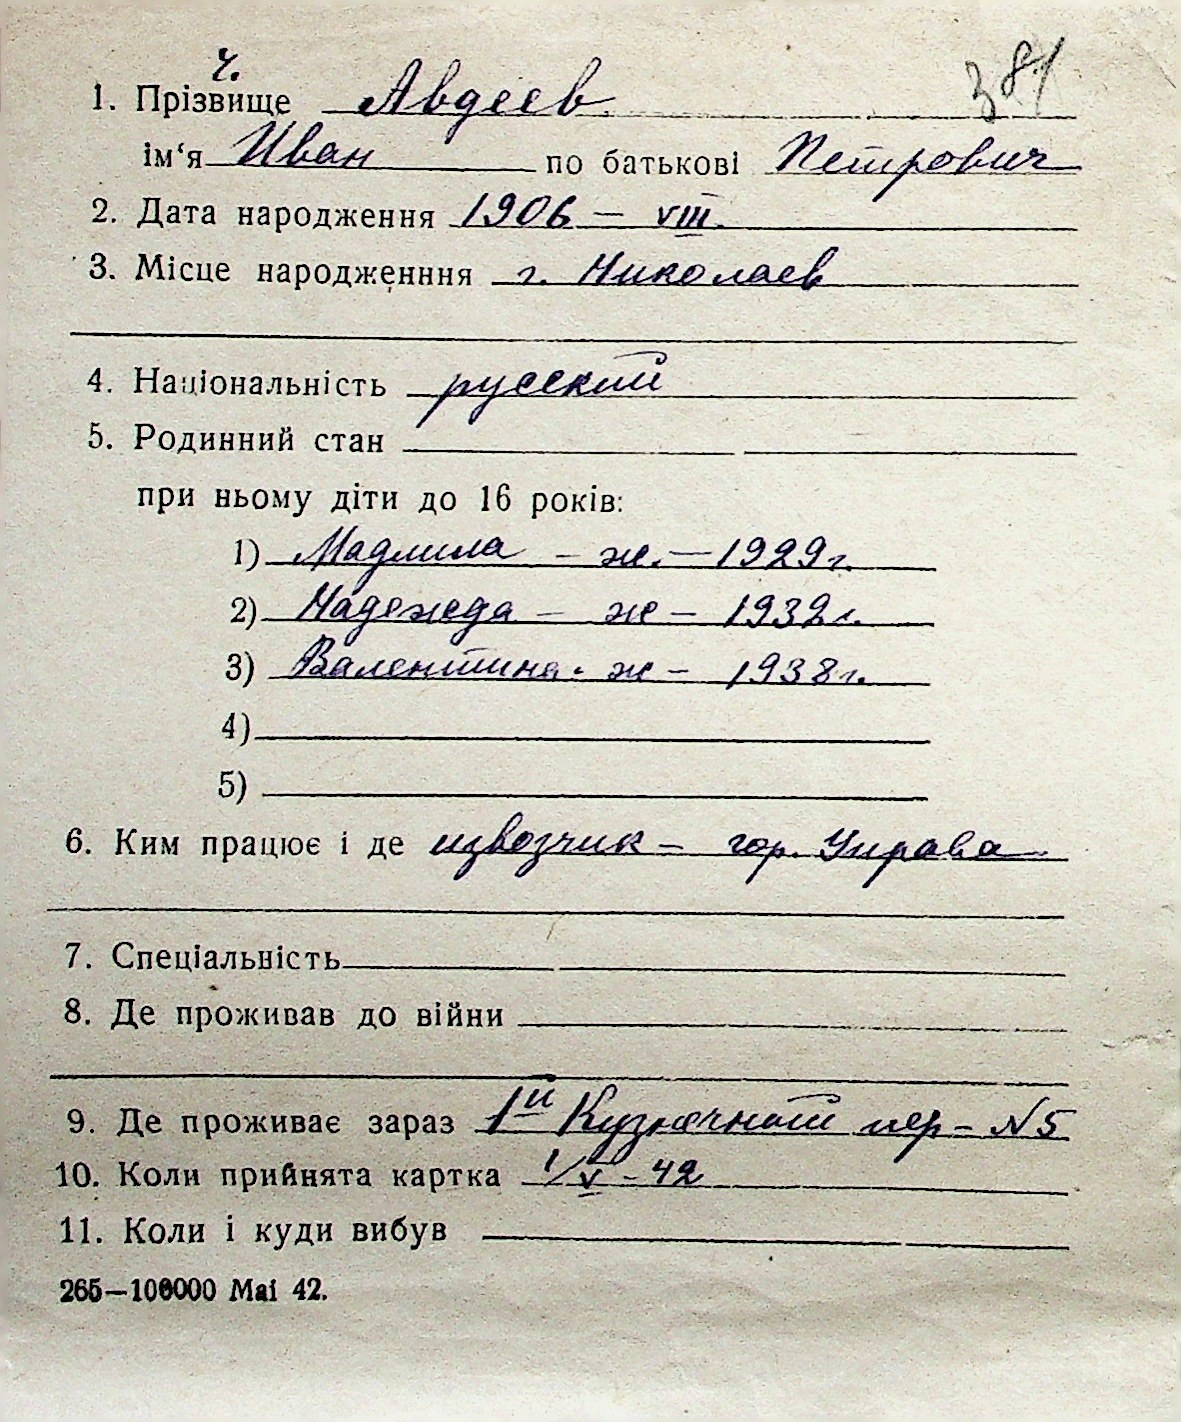 ч.
381
1. Прізвище Авдеев
ім‘я Иван по батькові Петрович
2. Дата народження 1906 – VIII.
3. Місце народженння г. Николаев
4. Національність русский
5. Родинний стан
при ньому діти до 16 років:
1) Мадлила – ж. – 1929 г.
2) Надежда – ж – 1932 г.
3) Валентина - ж – 1938 г.
4)
5)
6. Ким працює і де извозчик – гор. Управа
7. Спеціальність
8. Де проживав до війни
9. Де проживає зараз 1й Кузнечный пер – N 5
10. Коли прийнята картка 1/V – 42
11. Коли і куди вибув
265—100000 Маі 42.